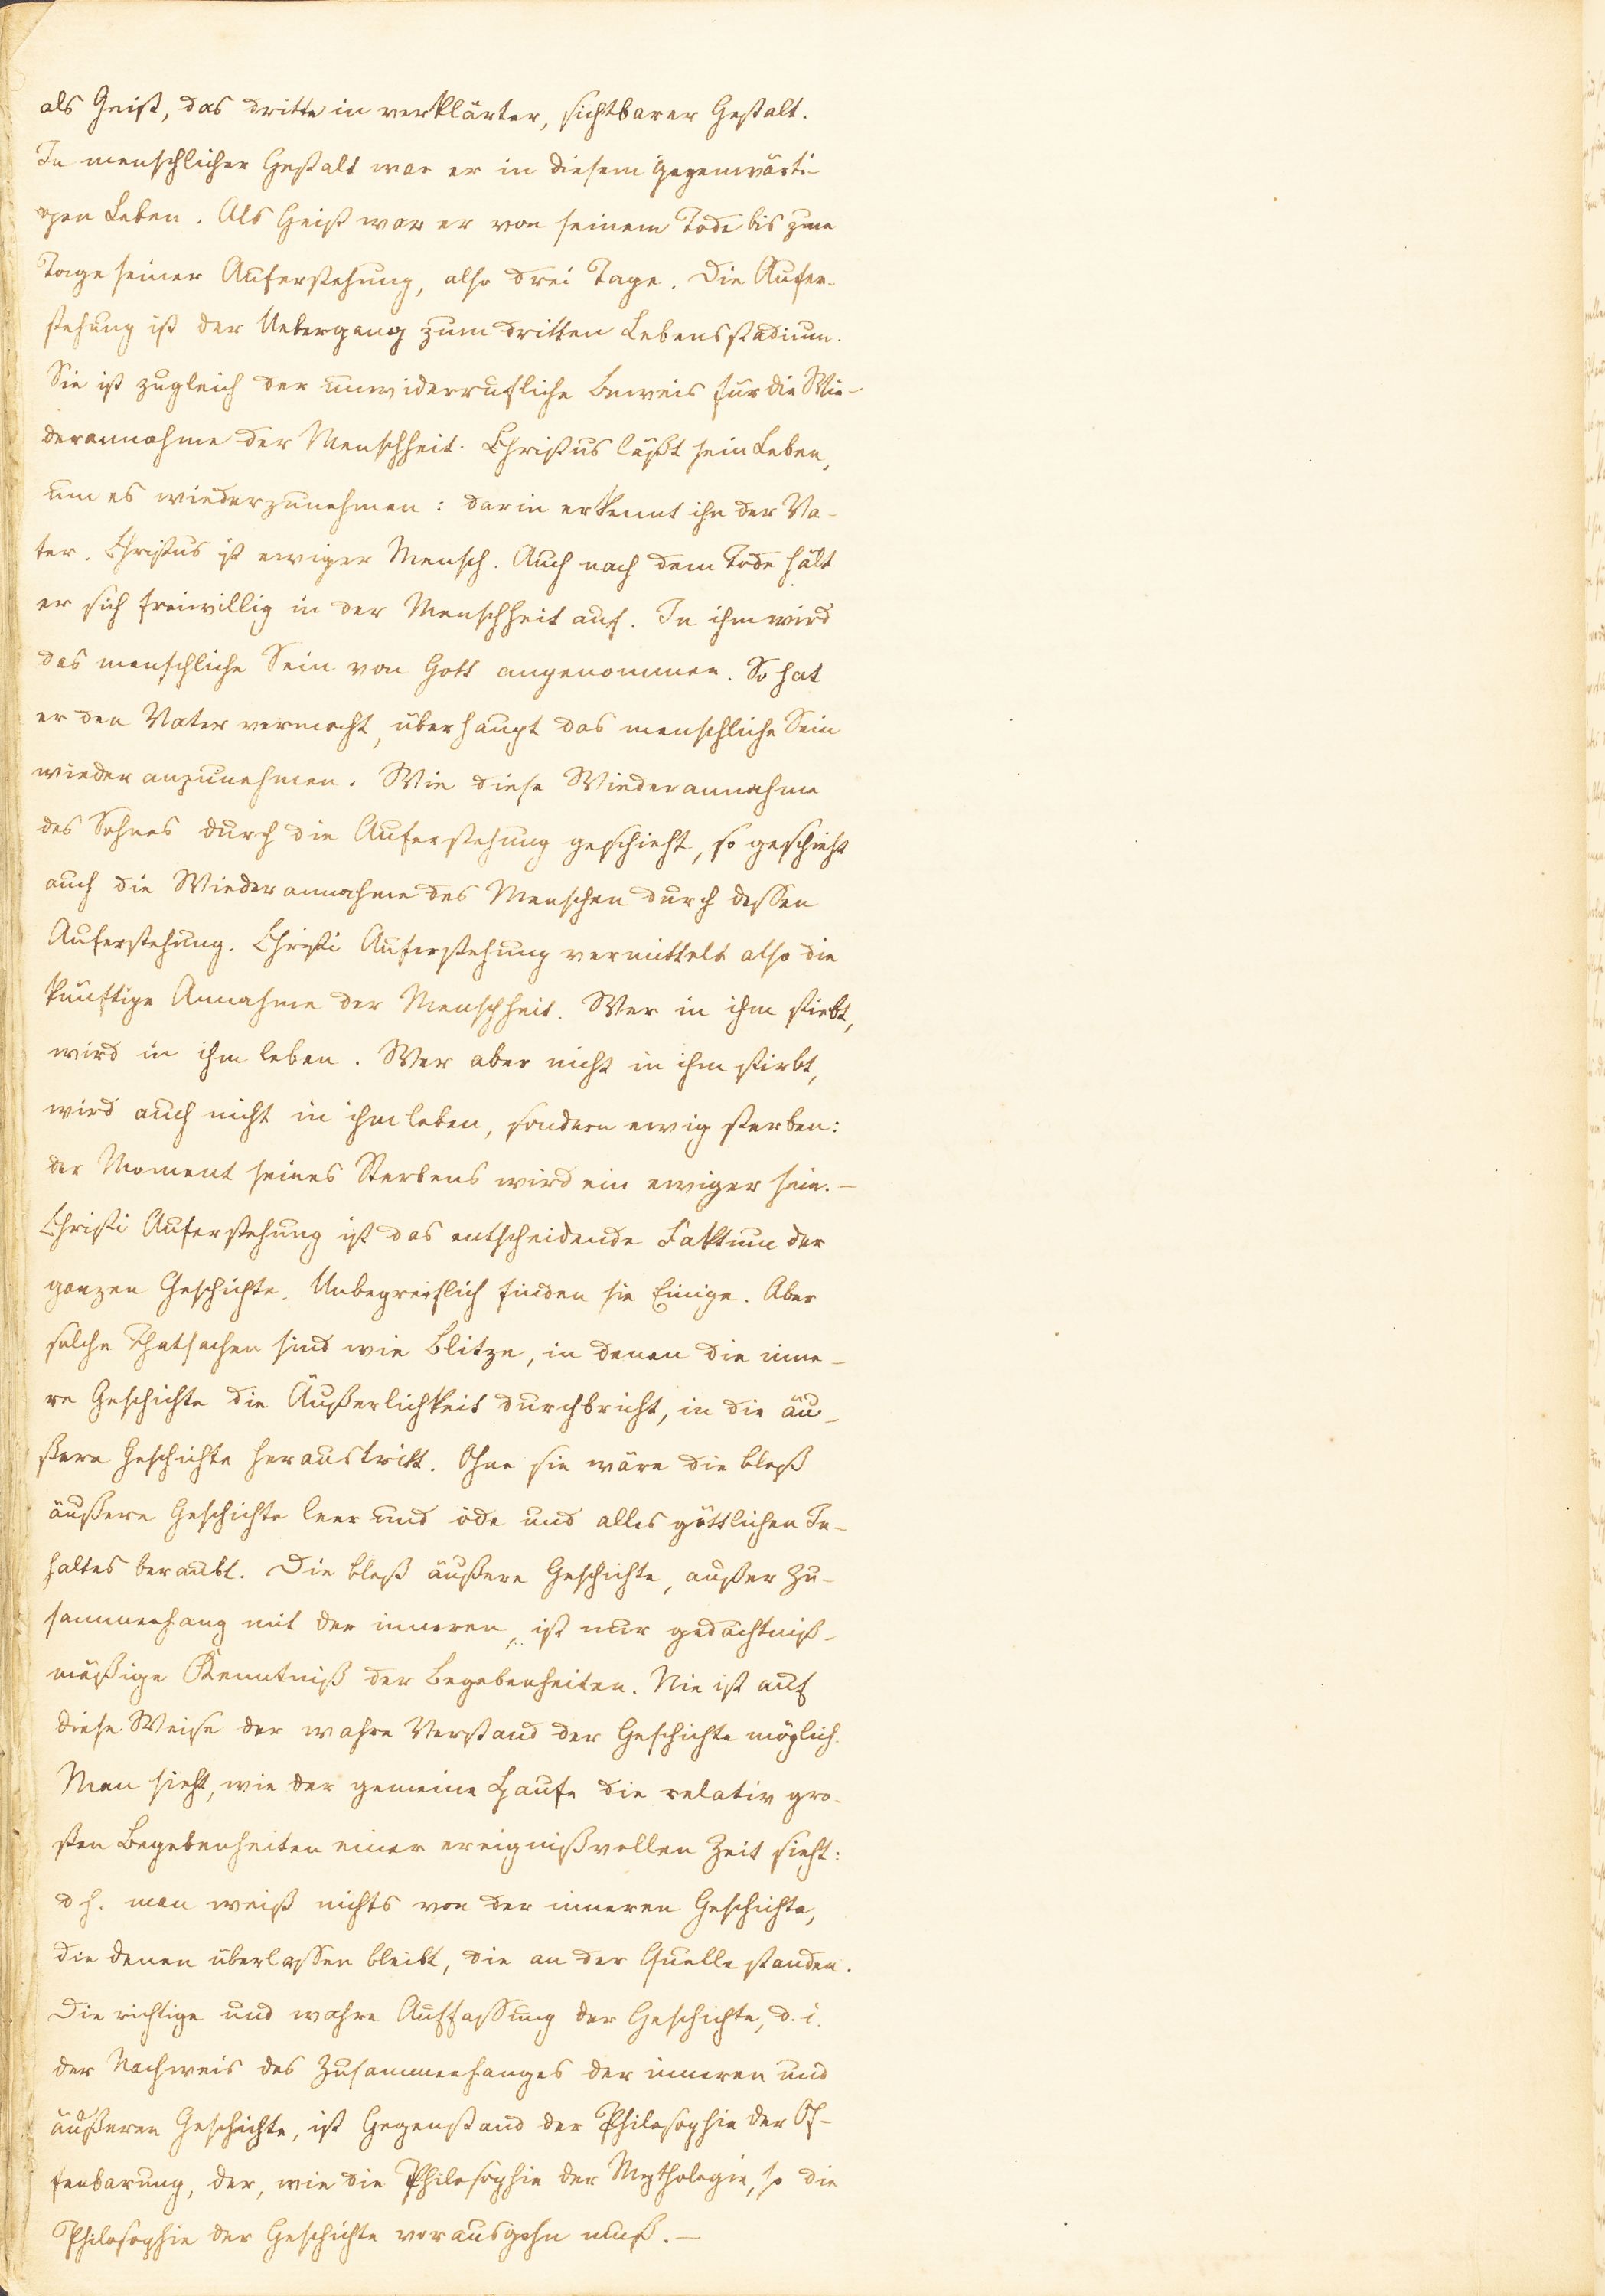 als Geist, das dritte in verklärter, sichtbarer Gestalt.
In menschlicher Gestalt war er in diesem gegenwärti-
gen Leben. Als Geist war er von seinem Tode bis zum
Tage seiner Auferstehung, also drei Tage. Die Aufer-
stehung ist der Uebergang zum dritten Lebensstadium.
Sie ist zugleich der unwiderrufliche Beweis für die Wie-
derannahme der Menschheit. Christus läßt sein Leben,
um es wiederzunehmen: darin erkennt ihn der Va-
ter. Christus ist ewiger Mensch. Auch nach dem Tode hält
er sich freiwillig in der Menschheit auf. In ihm wird
das menschliche Sein von Gott angenommen. So hat
er den Vater vermocht, überhaupt das menschliche Sein
wieder anzunehmen. Wie diese Wiederannahme
des Sohnes durch die Auferstehung geschieht, so geschieht
auch die Wiederannahme des Menschen durch dessen
Auferstehung. Christi Auferstehung vermittelt also die
künftige Annahme der Menschheit. Wer in ihm stirbt,
wird in ihm leben. Wer aber nicht in ihm stirbt,
wird auch nicht in ihm leben, sondern ewig sterben:
der Moment seines Sterbens wird ein ewiger sein.—
Christi Auferstehung ist das entscheidende Faktum der
ganzen Geschichte. Unbegreiflich finden sie Einige. Aber
solche Thatsachen sind wie Blitze, in denen die inne-
re Geschichte die Äußerlichkeit durchbricht, in die äu-
ßere Geschichte heraustritt. Ohne sie wäre die bloß
äußere Geschichte leer und öde und alles göttlichen In-
haltes beraubt. Die bloß äußere Geschichte, außer Zu-
sammenhang mit der inneren, ist nur gedächtniß-
mäßige Kenntniß der Begebenheiten. Nie ist auf
diese Weise der wahre Verstand der Geschichte möglich.
Man sieht, wie der gemeine Haufe die relativ gro-
ßen Begebenheiten einer ereignißvollen Zeit sieht:
d h. man weiß nichts von der inneren Geschichte,
die denen überlassen bleibt, die an der Quelle standen.
Die richtige und wahre Auffassung der Geschichte, d. i.
der Nachweis des Zusammenhanges der inneren und
äußeren Geschichte, ist Gegenstand der Philosophie der Of-
fenbarung, der, wie die Philosophie der Mythologie, so die
Philosophie der Geschichte vorausgehn muß.—